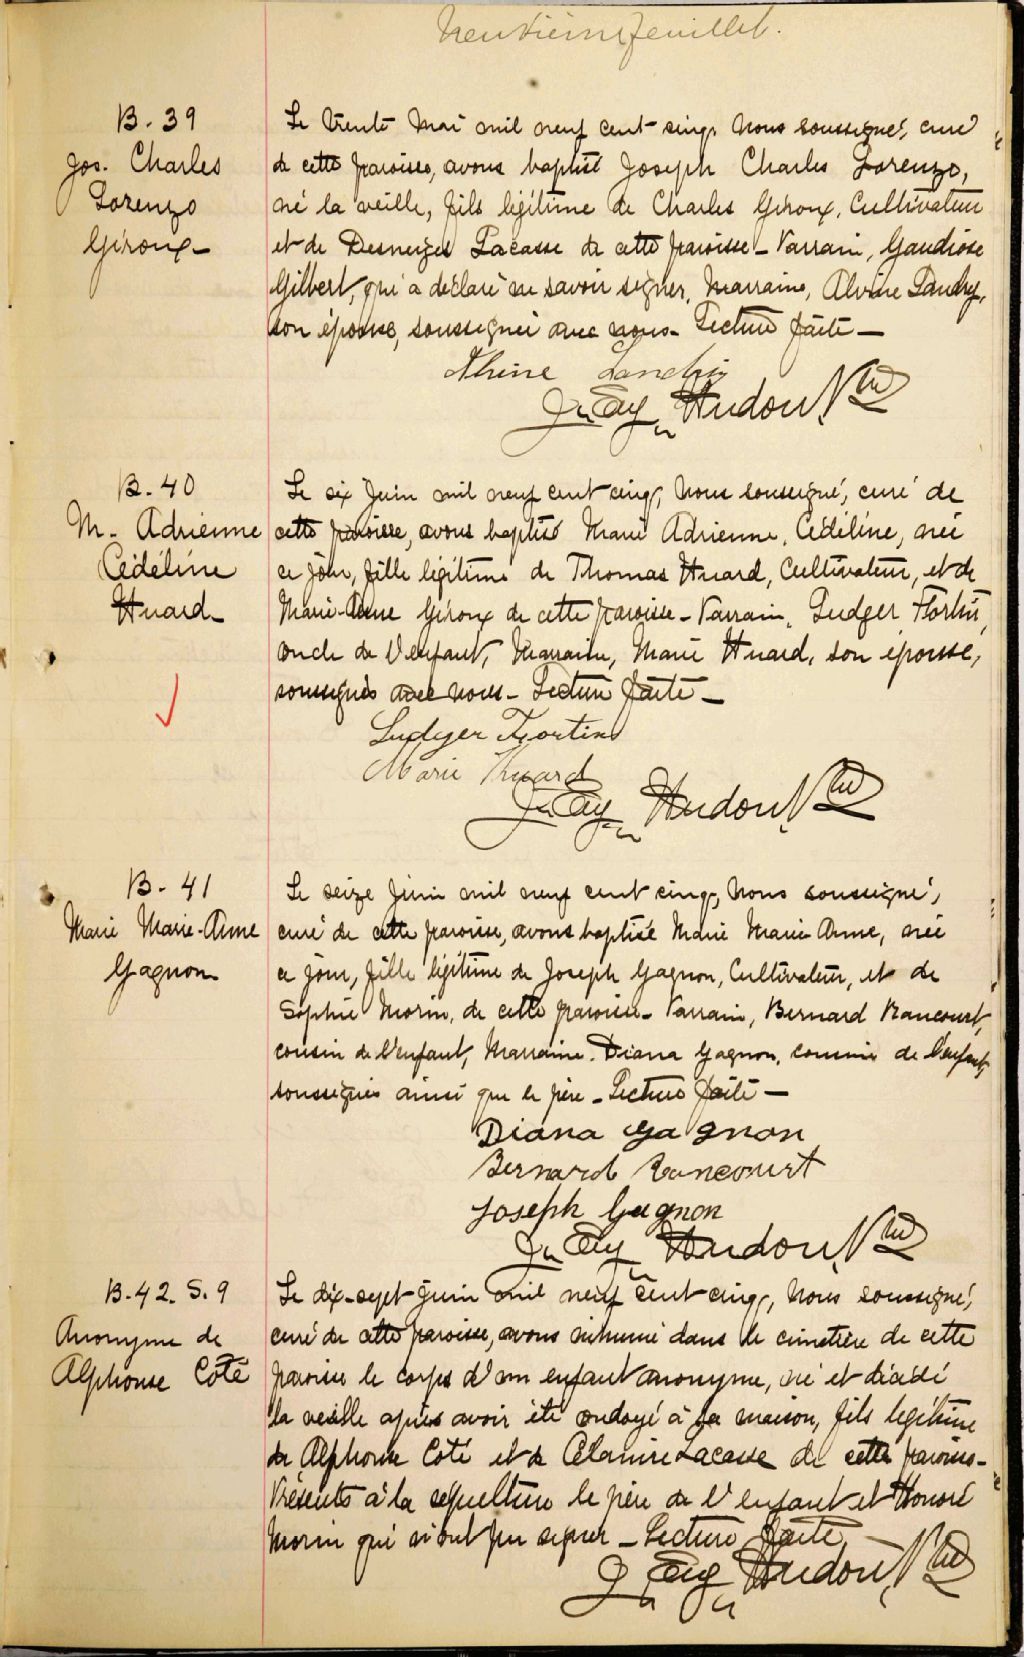 Neuvième feuillet.
B. 39
Jos. Charles
Lorenzo
Giroux_
Le trente Mai mil neuf cent cinq, Nous soussigné, curé
de cette paroisse, avons baptisé Joseph Charles Lorenzo,
né la veille, fils légitime de Charles Giroux, Cultivateur
et de Desneiges Lacasse de cette paroisse_ Parrain, Gaudiose
Gilbert, qui a déclaré ne savoir signer, Marraine, Alvine Landry,
son épouse, soussignée avec nous_ Lecture faite_
Alvine Landry
J. Eug. Hudon, Ptre
B. 40
M. Adrienne
Cédéline
Huard_
Le six Juin mil neuf cent cinq, Nous soussigné, curé de
cette paroisse, avons baptisé Marie Adrienne, Cédéline, née
ce jour, fille légitime de Thomas Huard, Cultivateur, et de
Marie-Anne Giroux de cette paroisse_ Parrain, Ludger Fortin,
oncle de l'enfant, Marraine, Marie Huard, son épouse,
soussignés avec nous_ Lecture faite_
Ludger Fortin
Marie Huard
J. Eug. Hudon, Ptre
B. 41
Marie Marie-Anne
Gagnon
Le seize Juin mil neuf cent cinq, Nous soussigné,
curé de cette paroisse, avons baptisé Marie Marie-Anne, née
ce jour, fille légitime de Joseph Gagnon, Cultivateur, et de
Sophie Morin, de cette paroisse_ Parrain, Bernard Rancourt,
cousin de l'enfant, Marraine, Diana Gagnon, cousine de l'enfant,
soussignés ainsi que le père_ Lecture faite_
Diana Gagnon
Bernard Rancourt
Joseph Gagnon
J. Eug. Hudon, Ptre
B. 42. S. 9
Anonyme de
Alphonse Côté
Le dix-sept Juin mil neuf cent cinq, Nous soussigné,
curé de cette paroisse, avons inhumé dans le cimetière de cette
paroisse le corps d'un enfant anonyme, né et décédé
la veille après avoir été ondoyé à la maison, fils légitime
de Alphonse Côté et de Célanire Lacasse de cette paroisse_
Présents à la sépulture le père de l'enfant et Honoré
Morin qui n'ont pu signer_ Lecture faite
J. Eug. Hudon, Ptre